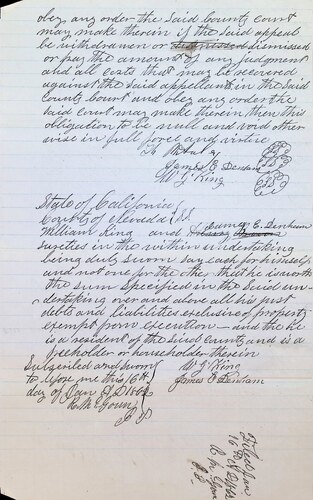 obey any order the said County Court
may make therein if the said appeal
be withdrawn or dismissed dismissed
or pay the amount of any judgment
and all costs that may be recovered
against the said appellant in the said
County Court and obey any order the
said Court may make therein then this
obligation to be null and void other
wise in full force and virtue
James E Denham
W J King
State of California
County of Nevada } SS
William King and James E. Denham
sureties in the within undertaking
being duly sworn say each for himself
and not one for the other that he is worth
the sum specified in the said un-
dertaking over and above all his just
debts and liabilities exclusive of property
exempt from execution – and the he
is a resident of the said County and is a
freeholder or householder therein
Subscribed and sworn
to before me this 16th
day of Jan A D 1862
W J King
James E Denham
J P
Filed Jan
16
J P